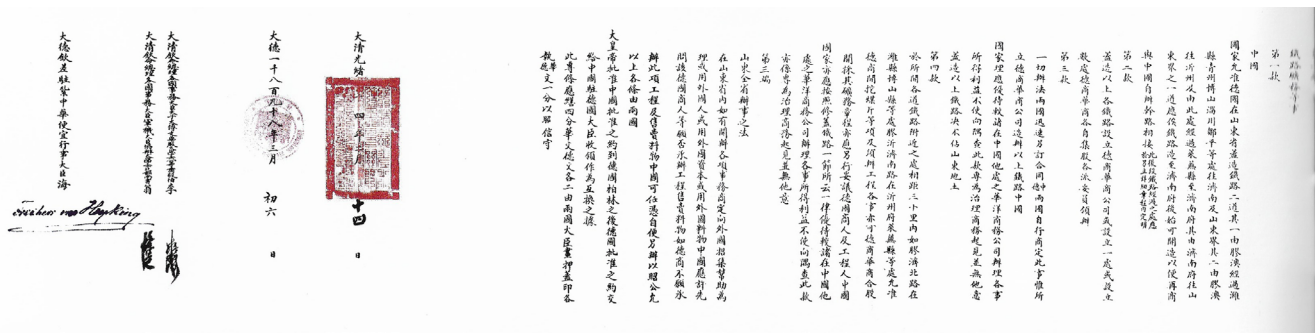 鐵路礦務等事
第一款
中國
國家允准德國在山東省蓋造鐵路二道其一由膠澳經過濰
縣青州博山淄川鄒平等處往濟南及山東界其二由膠澳
往沂州及由此處經過萊蕪縣至濟南府其由濟南府往山
東界之一道應俟鐵路造至濟南府後始可開造以便再商
與中國自辦幹路相接此後段鐵路經過之處應
於另立詳細章程內定明
第二款
蓋造以上各鐵路設立德商華商公司或設立一處或設立
數處德商華商各自集股各派妥員領辦
第三款
一切辦法兩國迅速另訂合同中德兩國自行商定此事惟所
立德商華商公司造辦以上鐵路中國
國家理應優待較諸在中國他處之華洋商務公司辦理各事
所得利益不使向隅查此款專為治理商務起見並無他意
蓋造以上鐵路決不佔山東地土
第四款
於所開各道鐵路附近之處相距三十里內如膠濟北路在
濰縣博山縣等處膠沂濟南路在沂州府萊蕪縣等處允准
德商開挖煤斤等項及須辦工程各事亦可德商華商合股
開採其礦務章程亦應另行妥議德國商人及工程人中國
國家亦應按照修蓋鐵路一節所云一律優待較諸在中國他
處之華洋商務公司辦理各事所得利益不使向隅查此款
亦係專為治理商務起見並無他意
第三端
山東全省辦事之法
在山東省內如有開辦各項事務商定向外國招集幫助為
理或用外國人或用外國資本或用外國料物中國應許先
問該德國商人等願否承辦工程售賣料物如德商不願承
辦此項工程及售賣料物中國可任憑自便另辦以昭公允
以上各條由兩國
大皇帝批准中國批准之約到德國柏林之後德國批准之約交
給中國駐德國大臣收領作為互換之據
此專條應繕四分華文德文各二由兩國大臣畫押蓋印各
執華
德文一分以昭信守
大清光緒
二十四年二月十四日
大德一千八百九十八年三月初六日
大德欽差駐紮中華便宜行事大臣海
Freiherr von Heyking